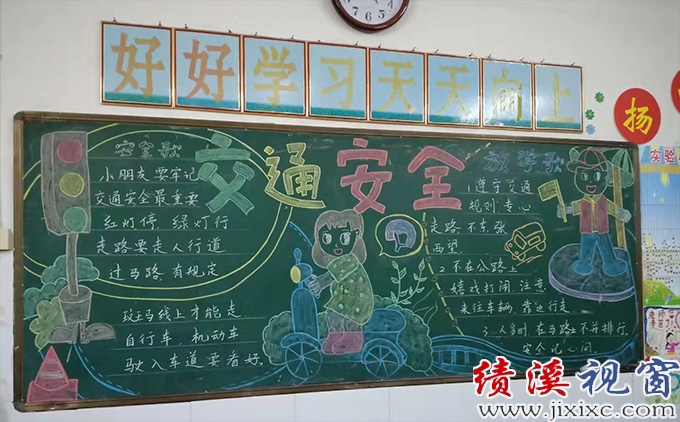 好好学习天天向上
扬
实验
交通安全
安全歌
小朋友要牢记
交通安全最重要
红灯停,绿灯行
走路要走人行道
过马路,有规定
斑马线上才能走
自行车,机动车
驶入车道要看好。
1遵守交通
规则,专心
走路,不东张
西望
2不在公路上
嬉戏打闹,注意
来往车辆,靠边行走
3、人多时,在马路不并排行,
安全记心间
绩溪视窗
www.jixixc.com